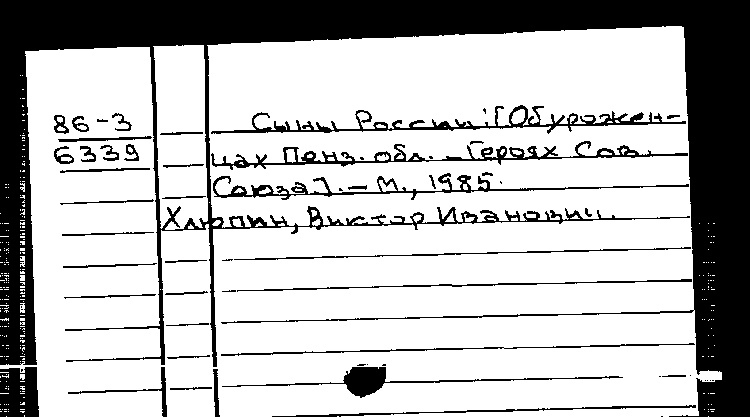 86-3
6339
Сыны России: [Об урожен-
цах Пенз. обл. - Героях Сов.
Союза]. - М., 1985.
Хлюпин, Виктор Иванович.